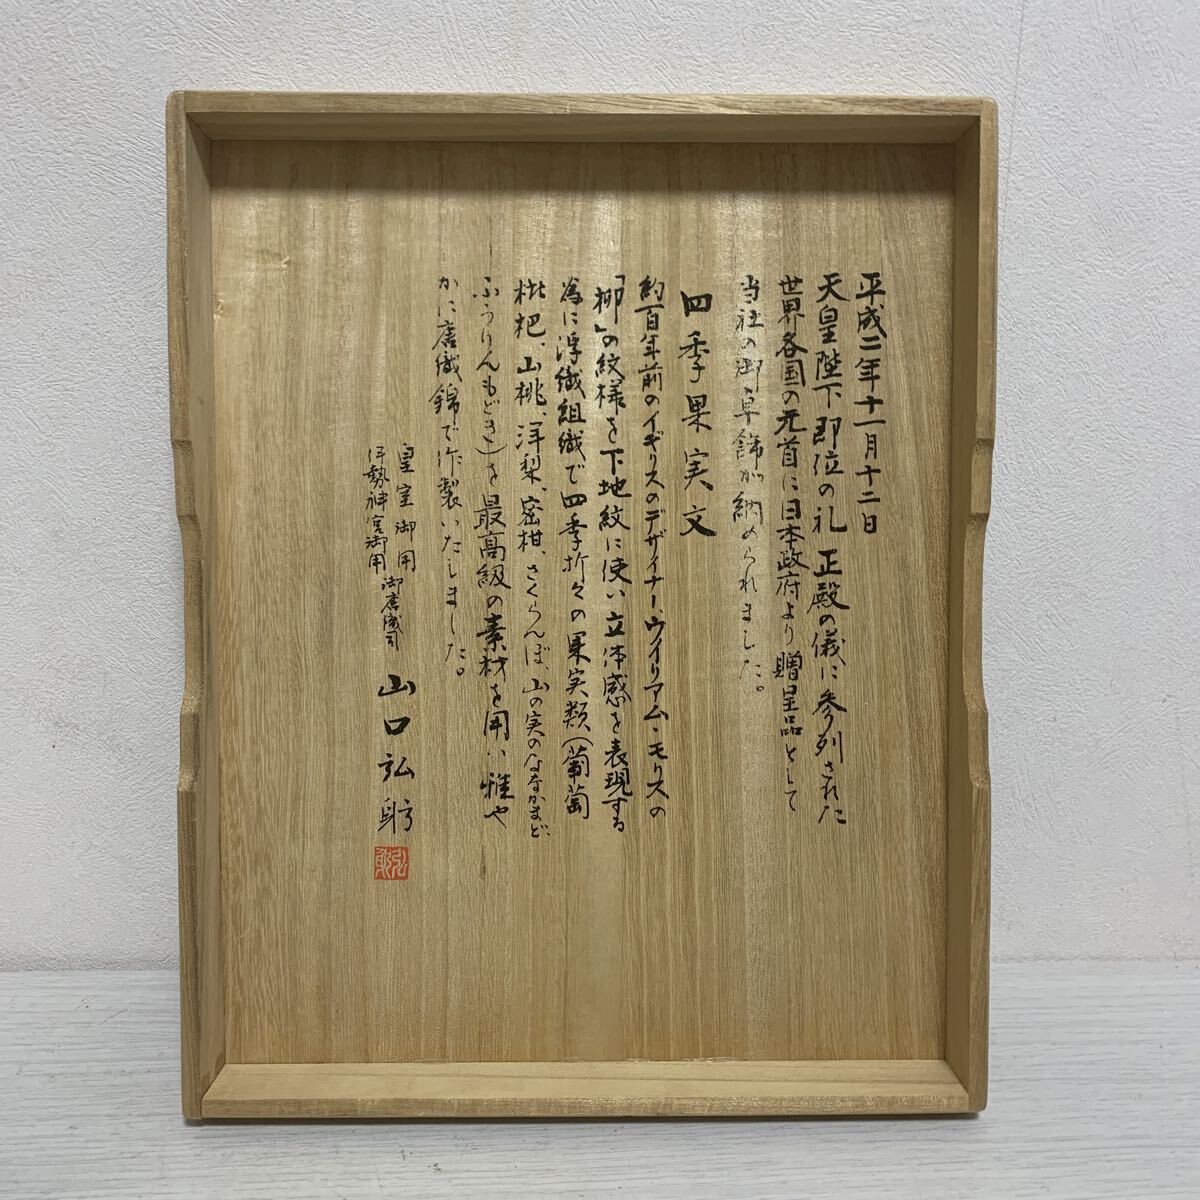 平成二年十一月十二日
天皇陛下即位の礼 正殿の儀に参列された
世界各国の元首に日本政府より贈呈品として
当社の御卓飾が納められました。
四季果実文
約百年前のイギリスのデザイナー、ウイリアム・モリスの
「柳」の紋様を下地紋に使い立体感を表現する
為に浮織組織で四季折々の果実類(葡萄
枇杷、山桃、洋梨、密柑、さくらんぼ、山の実のななかまど、
ふうりんもどき)を最高級の素材を用い雅や
かに唐織錦で作製いたしました。
皇室御用
伊勢神宮御用 御唐織司 山口弘
弘